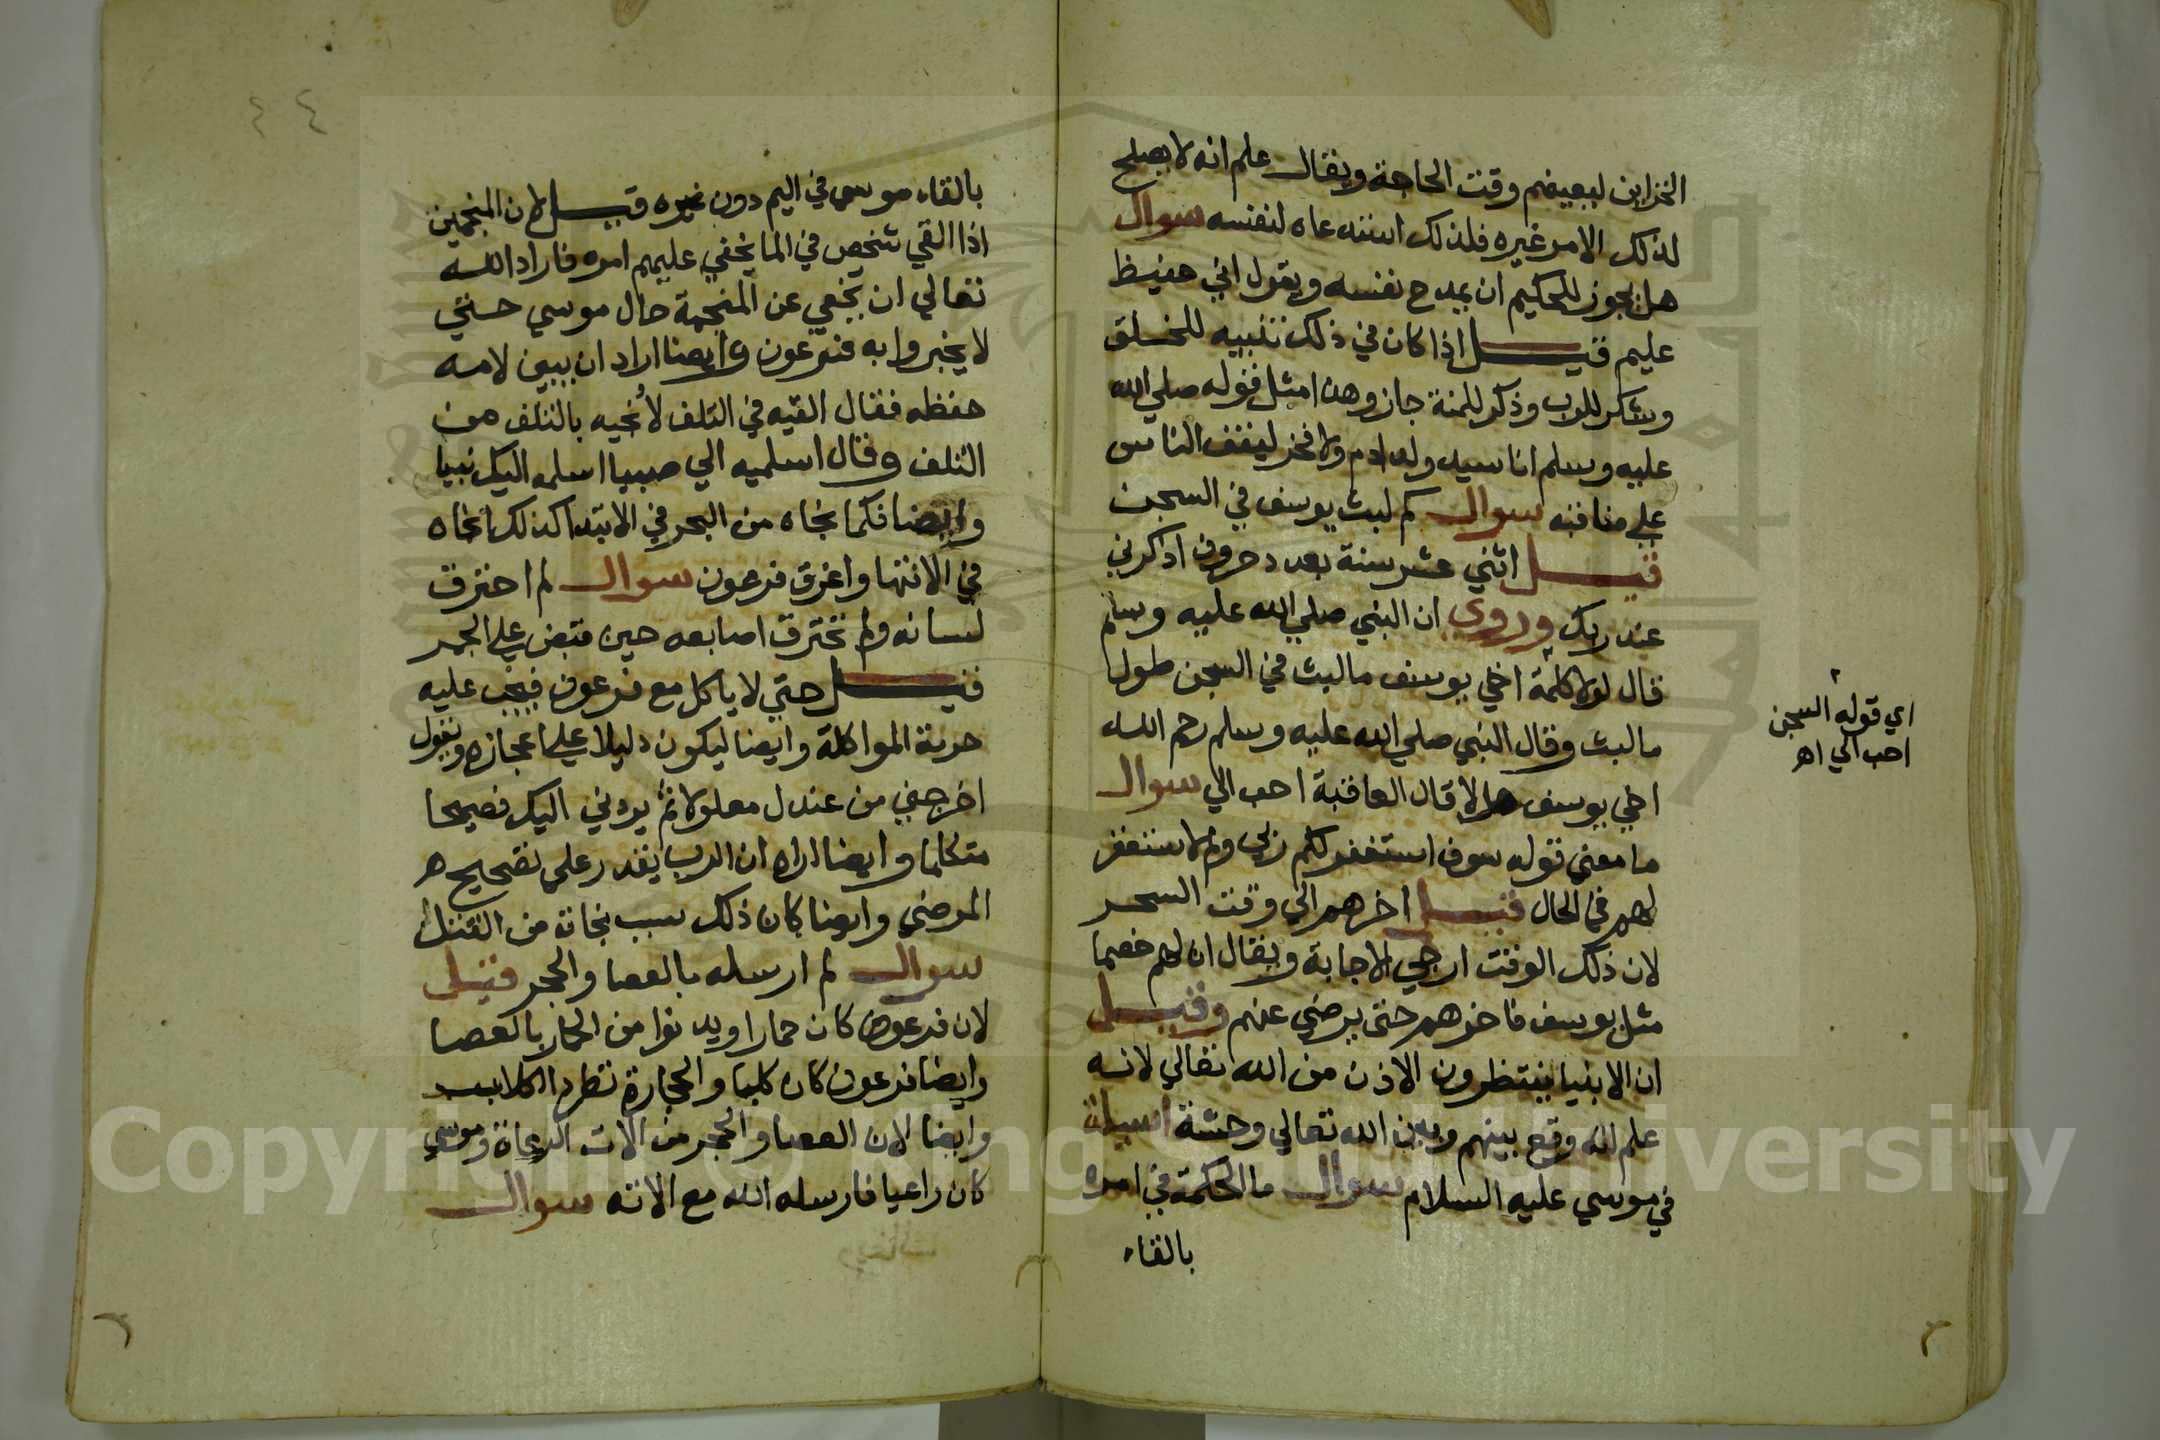 الخزاين لبعيضم وقت الحاجة ويقال علم انه لا يصلح
لذلك الامر غيره فلذلك استدعاه لنفسه سوال
هل يجوز للحكيم ان يمدح نفسه ويقول اني حفيظ
عليم قيل اذا كان في ذلك تنبيه للخلق
وشكر للرب وذكر للمنة جاز وهذا مثل قوله صلي الله
عليه وسلم انا سيد ولد ادم ولا فخر ليقف الناس
علي مناقبه سوال كم لبث يوسف في السجن
قيل اثني عشر سنة بعدد حروف اذكرني
عند ربك وروي ان النبي صلي الله عليه وسلم
قال لولا كلمة اخي يوسف ما لبث في السجن طول
ما لبث وقال النبي صلي الله عليه وسلم رحم الله
اخي يوسف هلا قال العافية احب الي سوال
ما معني قوله سوف استغفر لكم ربي ولم لا ستغفر
لهم في الحال قيل اخرهم الي وقت السحر
لان ذلك الوقت ارجي للاجابة ويقال ان لهم خصما
مثل يوسف فاخرهم حتي يرضي عنهم وقيل
ان الانبيا ينتظرون الاذن من الله تعالي لانه
علم انه وقع بينهم وبين الله تعالي وحشة اسيلة
في موسي عليه السلام سوال ما الحكمة في امره
بالقاء
اي قوله السجن
احب الي اه
٤٤
بالقاء موسي في اليم دون غيره قيل لان المنجمين
اذا القي شخص في الما يخفي عليهم امره فاراد الله
تعالي ان يخفي عن المنجمة حال موسي حتي
لا يخبروا به فرعون وايضا اراد ان يبين لامه
حفظه فقال القيه في التلف لانجيه بالتلف من
التلف وقال اسلميه الي صبيا اسلمه اليك نبيا
وايضا فكما نجاه من البحر في الابتدا كذلك انجاه
في الانتها واغرق فرعون سوال لم احترق
لسانه ولم تحترق اصابعه حين قبض علي الجمر
قيل حتي لا ياكل مع فرعون فيجب عليه
حرمة المواكلة وايضا ليكون دليلا علي اعجازه ويقول
اخرجني من عندك معلولا ثم يردني اليك فصيحا
متكلما وايضا اراه ان الرب يقدر علي تصحيح
المرضي وايضا كان ذلك سبب نجاته من القتل
سوال لم ارسله بالعصا والحجر قيل
لان فرعون كان حمارا ويدنوا من الحمار بالعصا
وايضا فرعون كان كلبا والحجارة تطرد الكلاب
وايضا لان العصا والحجر من الات الرعاة وموسي
كان راعيا فارسله الله مع الاته سوال